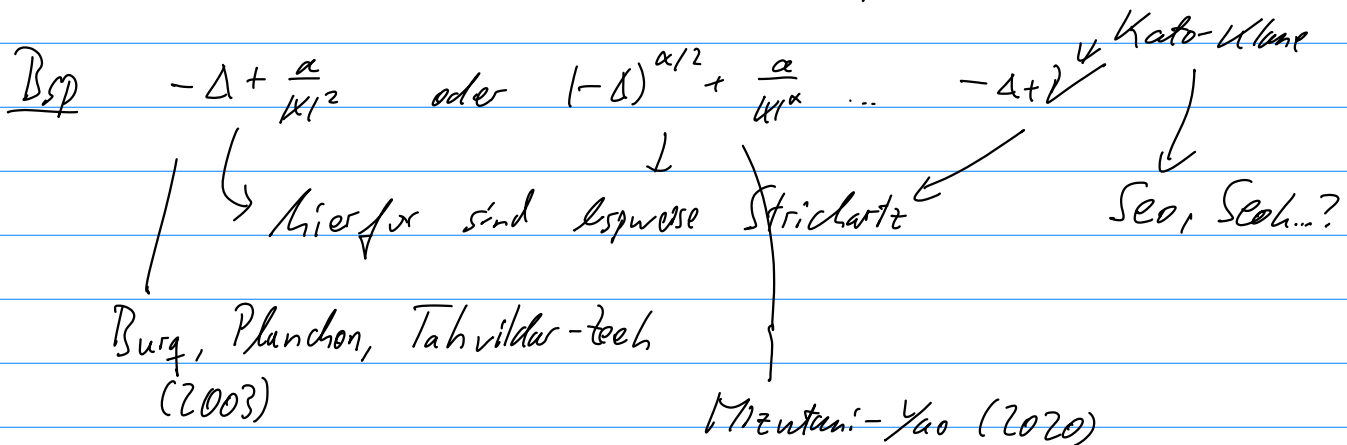 Kato-Klasse
Bsp -Δ + a/|x|² oder (-Δ)^{α/2} + a/|x|^α ... -Δ+V
hierfür sind bspweise Strichartz Seo, Seok...?
Burq, Planchon, Tahvildar-Zadeh
(2003)
Mizutani-Yao (2020)